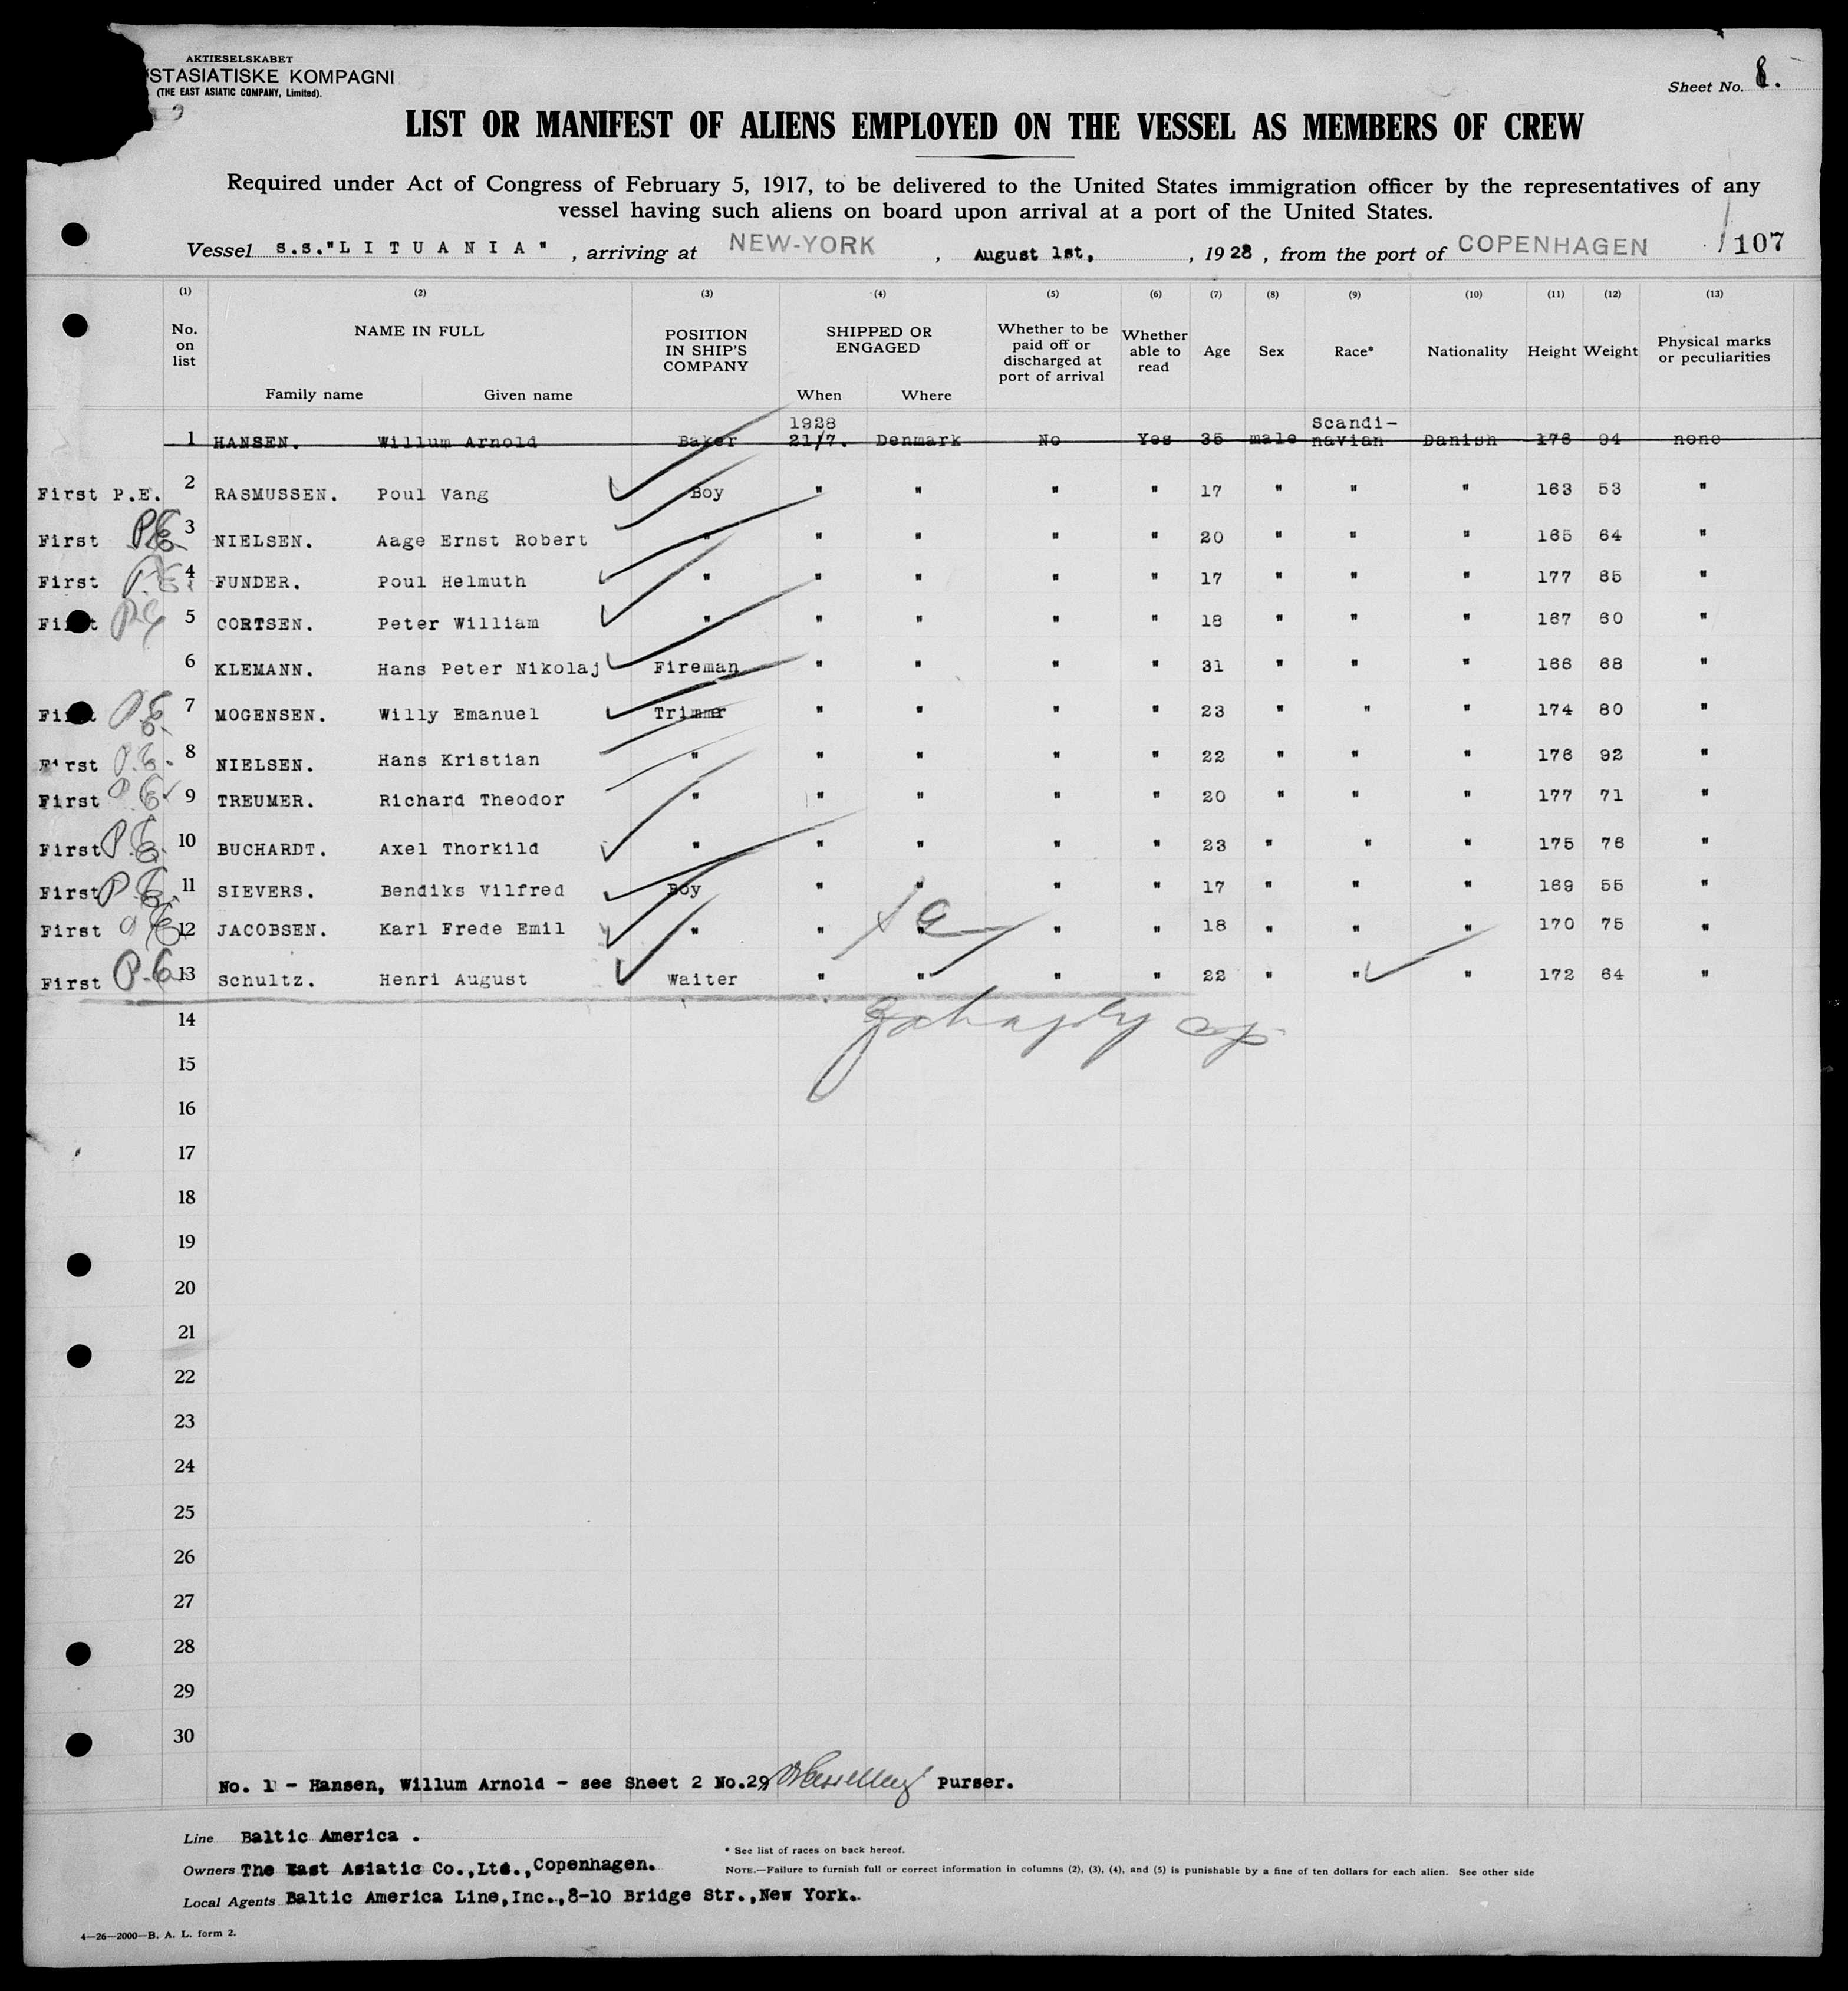 AKTIESELSKABET
STASIATISKE KOMPAGNI
(THE EAST ASIATIC COMPANY, Limited).
Sheet No. 8.
LIST OR MANIFEST OF ALIENS EMPLOYED ON THE VESSEL AS MEMBERS OF CREW
Required under Act of Congress of February 5, 1917, to be delivered to the United States immigration officer by the representatives of any
vessel having such aliens on board upon arrival at a port of the United States.
Vessel s.s."L I T U A N I A" , arriving at NEW-YORK , August 1st, , 1928 , from the port of COPENHAGEN 107
(1) (2) (3) (4) (5) (6) (7) (8) (9) (10) (11) (12) (13)
No. on list NAME IN FULL Family name Given name POSITION IN SHIP'S COMPANY SHIPPED OR ENGAGED When Where Whether to be paid off or discharged at port of arrival Whether able to read Age Sex Race* Nationality Height Weight Physical marks or peculiarities
1 HANSEN. Willum Arnold Baker 1928 21/7. Denmark No Yes 35 male Scandi-navian Danish 176 94 none
First P.E. 2 RASMUSSEN. Poul Vang Boy " " " " 17 " " " 163 53 "
First P.E. 3 NIELSEN. Aage Ernst Robert " " " " " 20 " " " 165 64 "
First P.E. 4 FUNDER. Poul Helmuth " " " " " 17 " " " 177 65 "
First P.E. 5 CORTSEN. Peter William " " " " " 18 " " " 167 60 "
6 KLEMANN. Hans Peter Nikolaj Fireman " " " " 31 " " " 166 68 "
First P.E. 7 MOGENSEN. Willy Emanuel Trimmr " " " " 23 " " " 174 80 "
First P.E. 8 NIELSEN. Hans Kristian " " " " " 22 " " " 176 92 "
First P.E. 9 TREUMER. Richard Theodor " " " " " 20 " " " 177 71 "
First P.E. 10 BUCHARDT. Axel Thorkild " " " " " 23 " " " 175 76 "
First P.E. 11 SIEVERS. Bendiks Vilfred Boy " " " " 17 " " " 169 55 "
First P.E. 12 JACOBSEN. Karl Frede Emil " " " " " 18 " " " 170 75 "
First P.E. 13 Schultz. Henri August Waiter " " " " 22 " " " 172 64 "
14
15
16
17
18
19
20
21
22
23
24
25
26
27
28
29
30
No. 1 - Hansen, Willum Arnold - see Sheet 2 No.29 Purser.
Line Baltic America .
* See list of races on back hereof.
Owners The East Asiatic Co.,Ltd.,Copenhagen.
NOTE.—Failure to furnish full or correct information in columns (2), (3), (4), and (5) is punishable by a fine of ten dollars for each alien. See other side
Local Agents Baltic America Line,Inc.,8-10 Bridge Str.,New York.
4—26—2000—B. A. L. form 2.